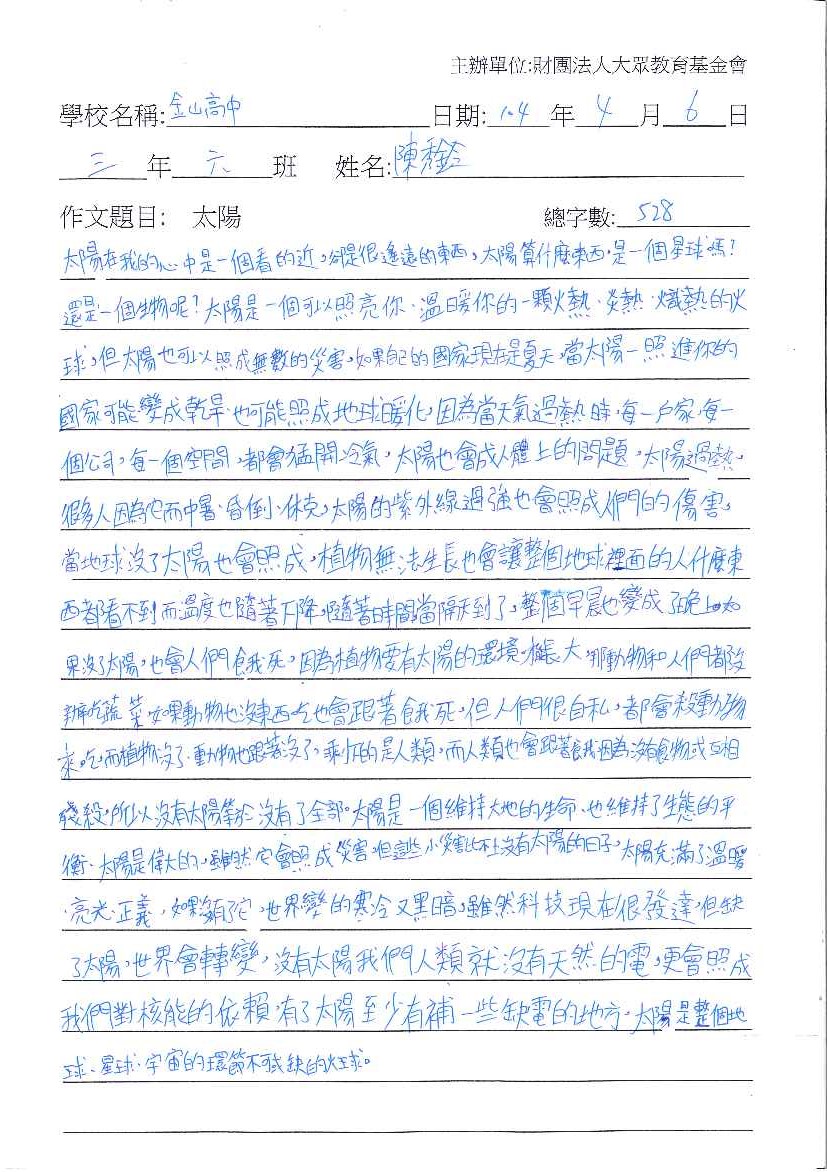 主辦單位:財團法人大眾教育基金會
學校名稱:金山高中 日期: 104 年 4 月 6 日
三 年 六 班 姓名:陳
作文題目: 太陽 總字數: 528
太陽在我的心中是一個看的近,卻是很遙遠的東西,太陽算什麼東西,是一個星球嗎?
還是一個生物呢?太陽是一個可以照亮你、溫暖你的一顆火熱、炎熱、熾熱的火
球,但太陽也可以照成無數的災害,如果自己的國家現在是夏天,當太陽一照進你的
國家可能變成乾旱也可能照成地球暖化,因為當天氣過熱時,每一戶家,每一
個公司,每一個空間,都會猛開冷氣,太陽也會成人體上的問題,太陽過熱,
很多人因為它而中暑、昏倒、休克,太陽的紫外線過強也會照成人們的傷害,
當地球沒了太陽也會照成,植物無法生長也會讓整個地球裡面的人什麼東
西都看不到而溫度也隨著下降,隨著時間,當隔天到了,整個早晨也變成了晚上如
果沒了太陽,也會人們餓死,因為植物要有太陽的環境才長大,那動物和人們都沒
辦吃蔬菜如果動物也沒東西吃也會跟著餓死,但人們很自私,都會殺動物
來吃而植物沒了、動物也跟著沒了,乘下的是人類,而人類也會跟著餓死因為沒有食物或互相
殘殺,所以沒有太陽等於沒有了全部。太陽是一個維持大地的生命、也維持了生態的平
衡、太陽是偉大的,雖然它會照成災害,但這些小災害比不上沒有太陽的日子,太陽充滿了溫暖
、亮光、正義,如果沒有了它,世界變的寒冷又黑暗,雖然科技現在很發達,但缺
了太陽,世界會轉變,沒有太陽我們人類就沒有天然的電,更會照成
我們對核能的依賴,有了太陽至少有補一些缺電的地方,太陽是整個地
球、星球、宇宙的環節不可或缺的火球。